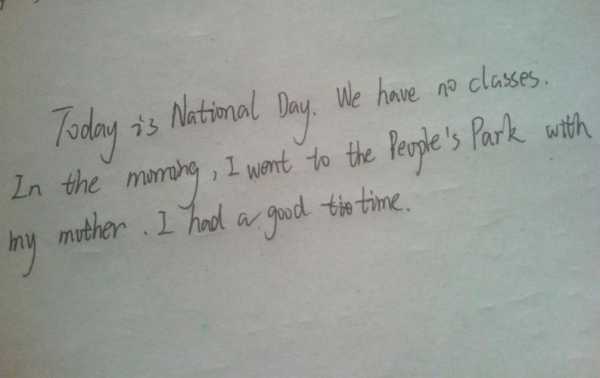 Today is National Day. We have no classes.
In the morning, I went to the People's Park with
my mother. I had a good tio time.